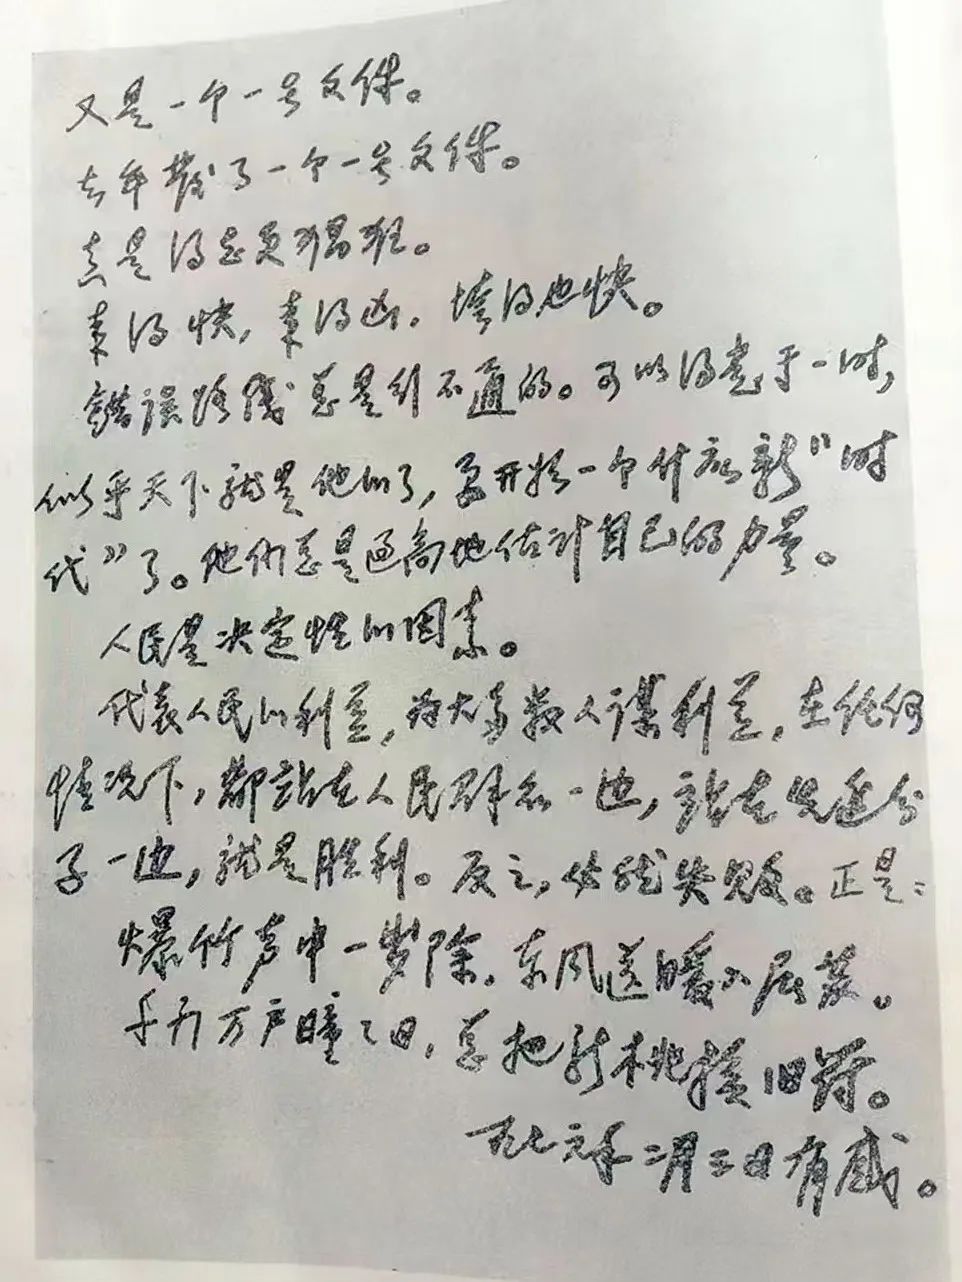 又是一个一号文件。
去年发了一个一号文件。
真是得志更猖狂。
来得快，来得凶，垮得也快。
错误路线总是行不通的。可以得意于一时，
似乎天下就是他们了，要开始一个什么新"时
代"了。他们总是过高地估计自己的力量。
人民是决定性的因素。
代表人民的利益，为大多数人谋利益，在任何
情况下，都站在人民群众一边，站在先进分
子一边，就是胜利。反之，必然失败。正是：
爆竹声中一岁除，东风送暖入屠苏。
千门万户曈曈日，总把新桃换旧符。
一九七六年二月三日有感。